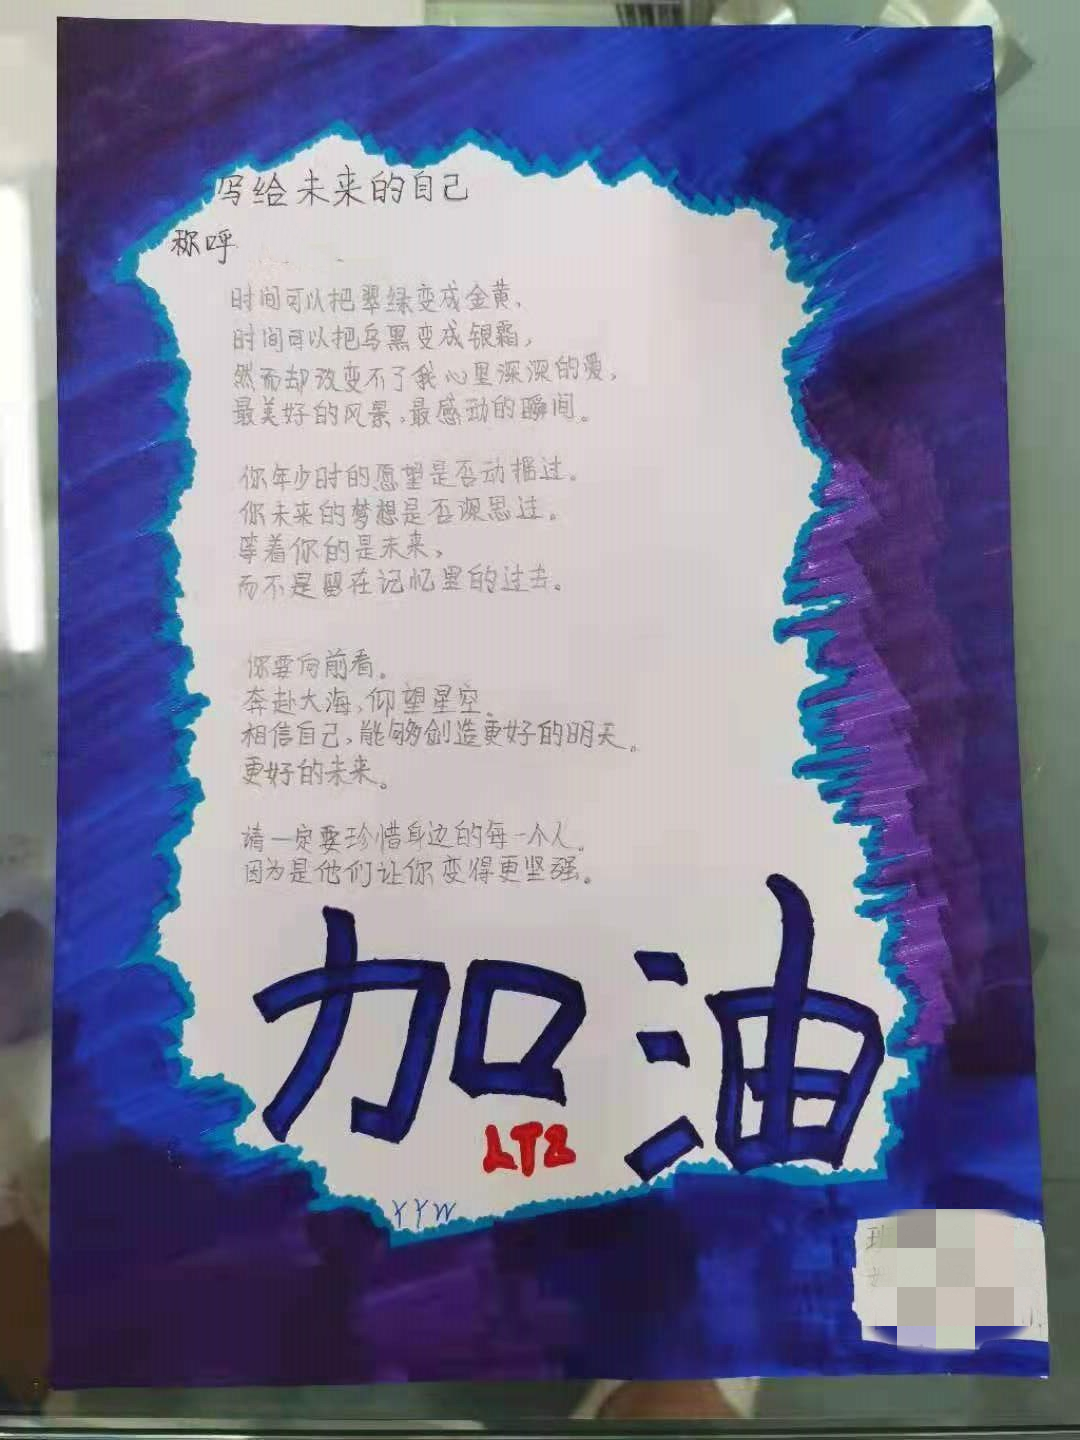 写给未来的自己
称呼
时间可以把翠绿变成金黄,
时间可以把乌黑变成银霜,
然而却改变不了我心里深深的爱,
最美好的风景,最感动的瞬间。
你年少时的愿望是否动摇过。
你未来的梦想是否深思过。
等着你的是未来,
而不是留在记忆里的过去。
你要向前看。
奔赴大海,仰望星空。
相信自己,能够创造更好的明天。
更好的未来。
请一定要珍惜身边的每一个人。
因为是他们让你变得更坚强。
加油
LTZ
YYW